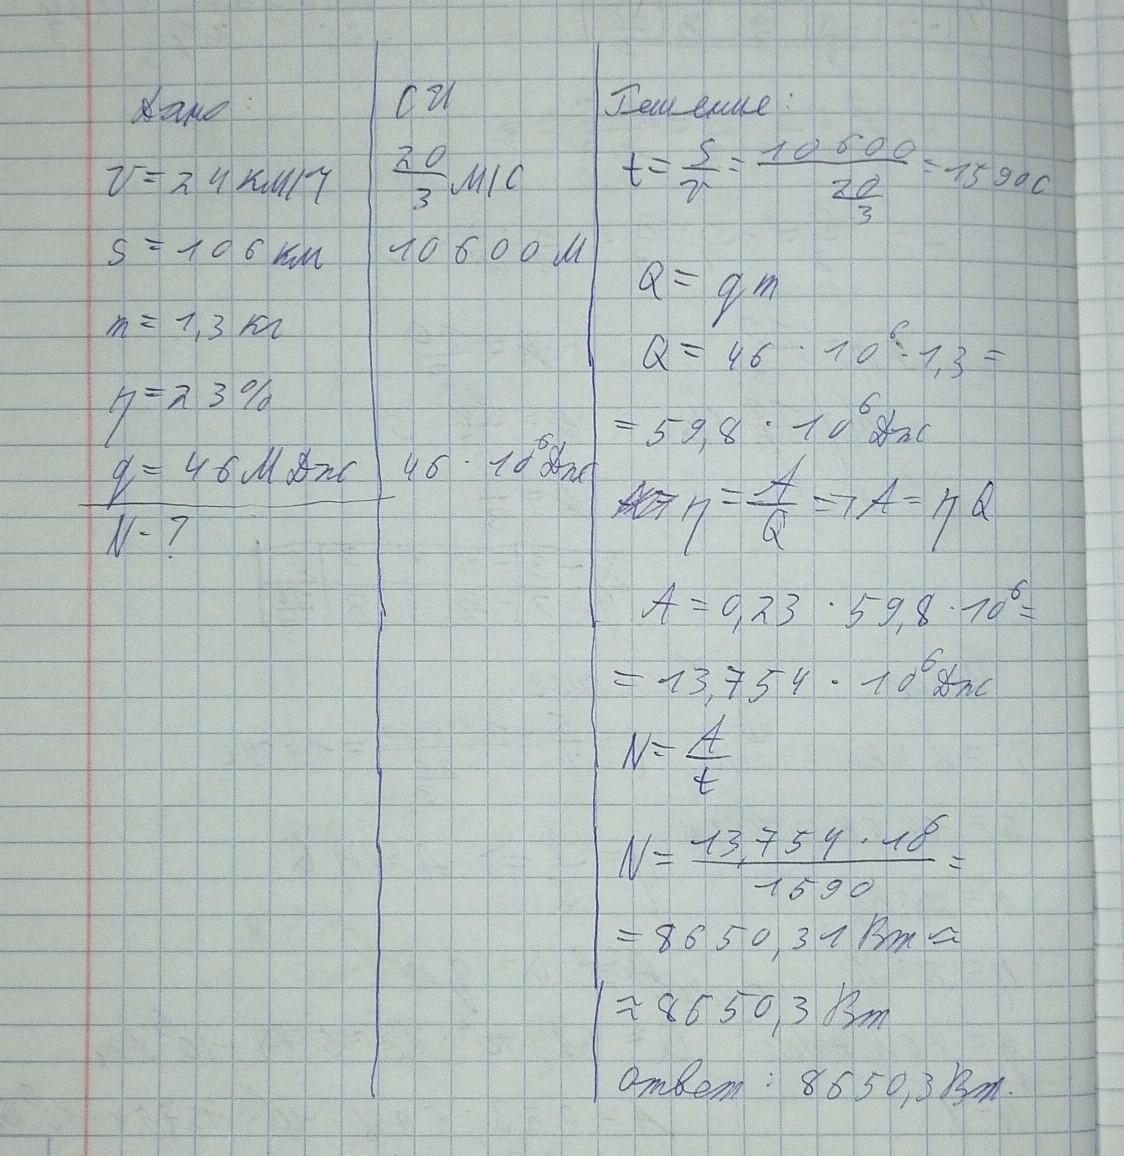 Дано:
v = 24 км/ч
s = 106 км
m = 1,3 кг
η = 23%
q = 46 МДж
N - ?
СИ
20/3 м/с
10600 м
46 · 10⁶ Дж
Решение:
t = s/v = 10600/(20/3) = 1590с
Q = qm
Q = 46 · 10⁶ · 1,3 =
= 59,8 · 10⁶ Дж
η = A/Q => A = ηQ
A = 0,23 · 59,8 · 10⁶ =
= 13,754 · 10⁶ Дж
N = A/t
N = 13,754 · 10⁶/1590 =
= 8650,31 Вт ≈
≈ 8650,3 Вт
ответ: 8650,3 Вт.